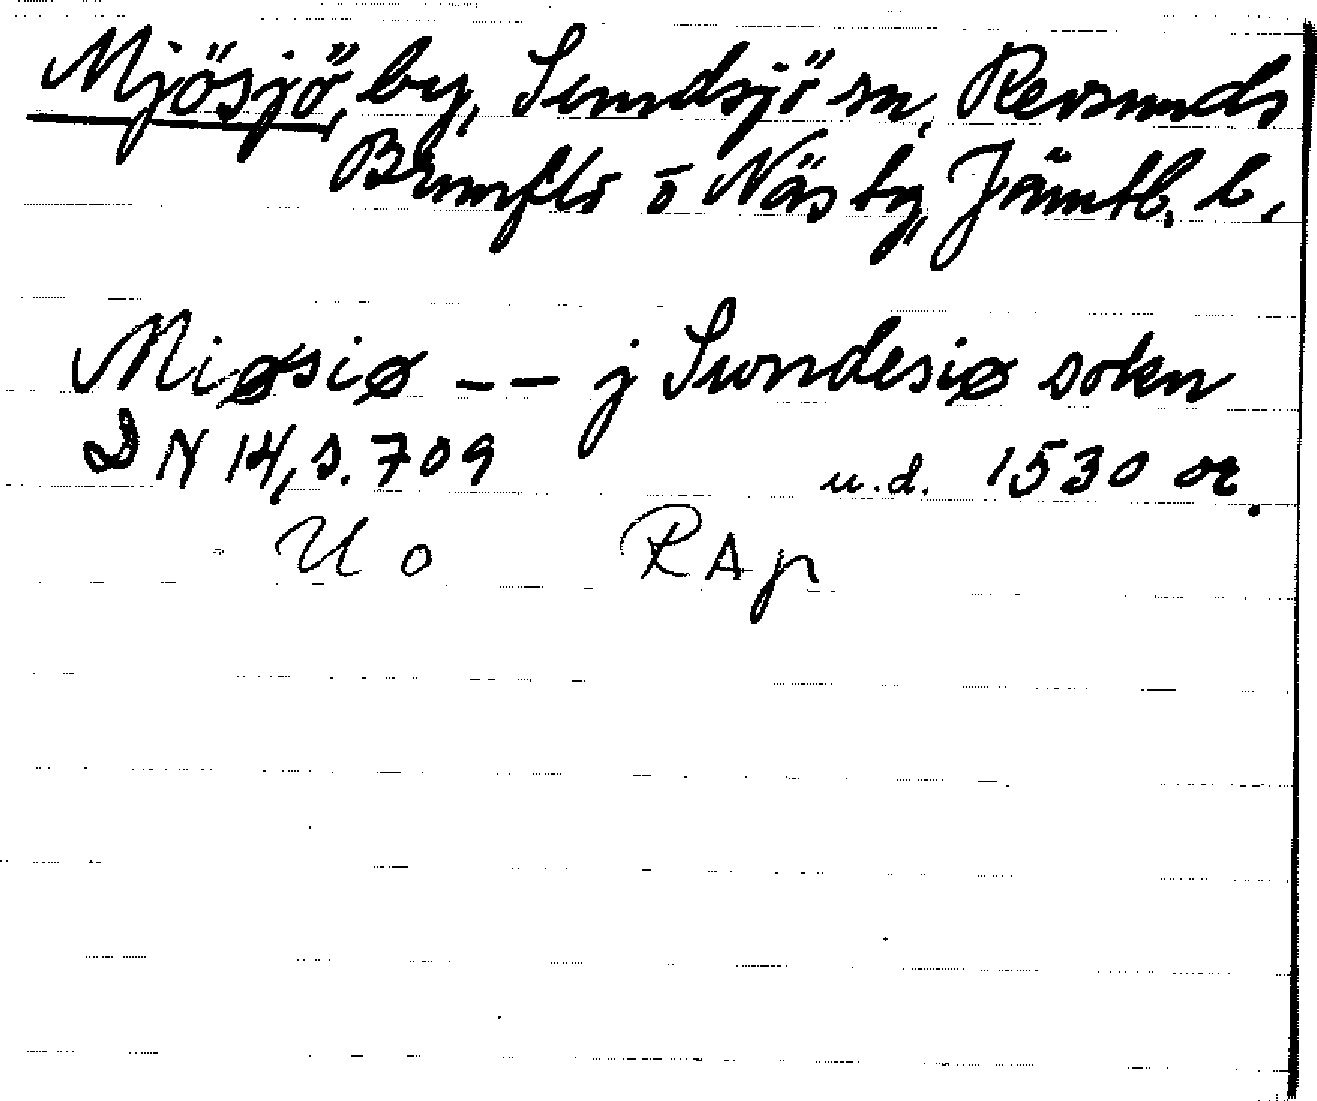 Mjösjö, by, Sundsjö sn, Revsunds
Brunflo o Näs tg, Jämtl. l.
Miøsiø -- j Sundesiø sokn
DN 14, s. 709 u.d. 1530 or.
U o RAp